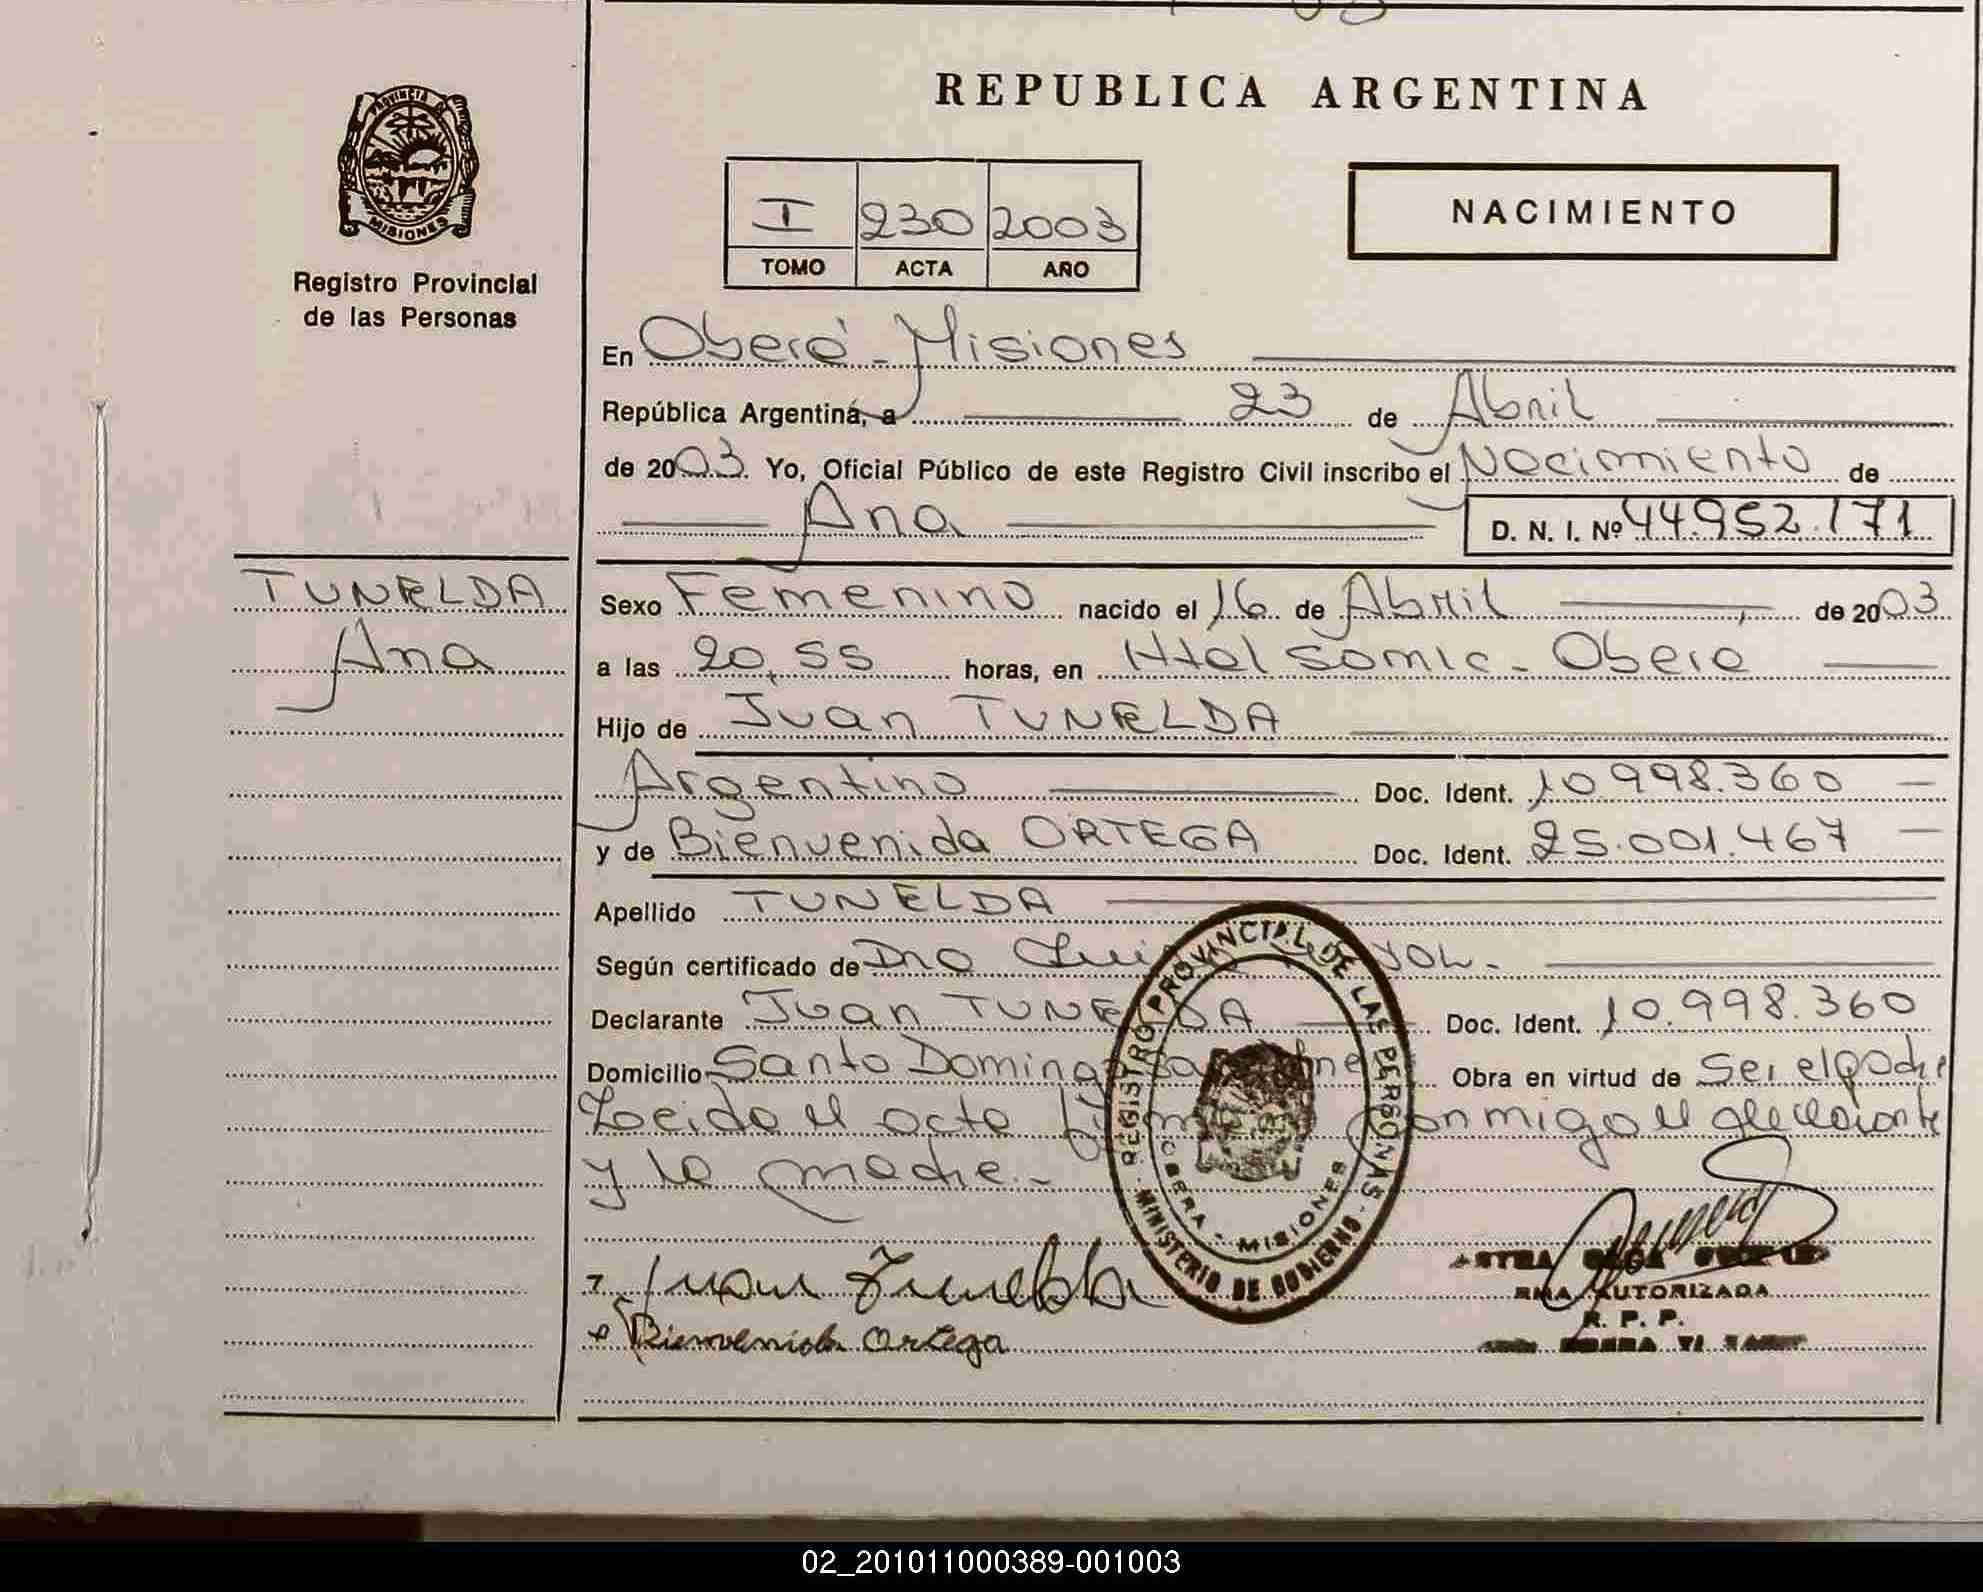 REPUBLICA ARGENTINA
PROVINCIA DE MISIONES
Registro Provincial
de las Personas
I 230 2003
TOMO ACTA AÑO
NACIMIENTO
En Oberá - Misiones
República Argentina, a 23 de Abril
de 2003. Yo, Oficial Público de este Registro Civil inscribo el Nacimiento de
Ana D. N. I. Nº 44.952.171
TUNELDA
Ana
Sexo Femenino nacido el 16 de Abril de 2003
a las 20,55 horas, en Htal Samic - Oberá
Hijo de Juan TUNELDA
Argentino Doc. Ident. 10.998.360
y de Bienvenida ORTEGA Doc. Ident. 25.001.467
Apellido TUNELDA
Según certificado de Dra
Declarante Juan TUNELDA Doc. Ident. 10.998.360
Domicilio Santo Domingo Obra en virtud de Ser el padre
Leida el acta firman conmigo el declarante
y la madre.-
REGISTRO PROVINCIAL DE LAS PERSONAS
OBERA - MISIONES
MINISTERIO DE GOBIERNO
Juan Tunelda
Bienvenida Ortega
AUTORIZADA
R. P. P.
02_201011000389-001003